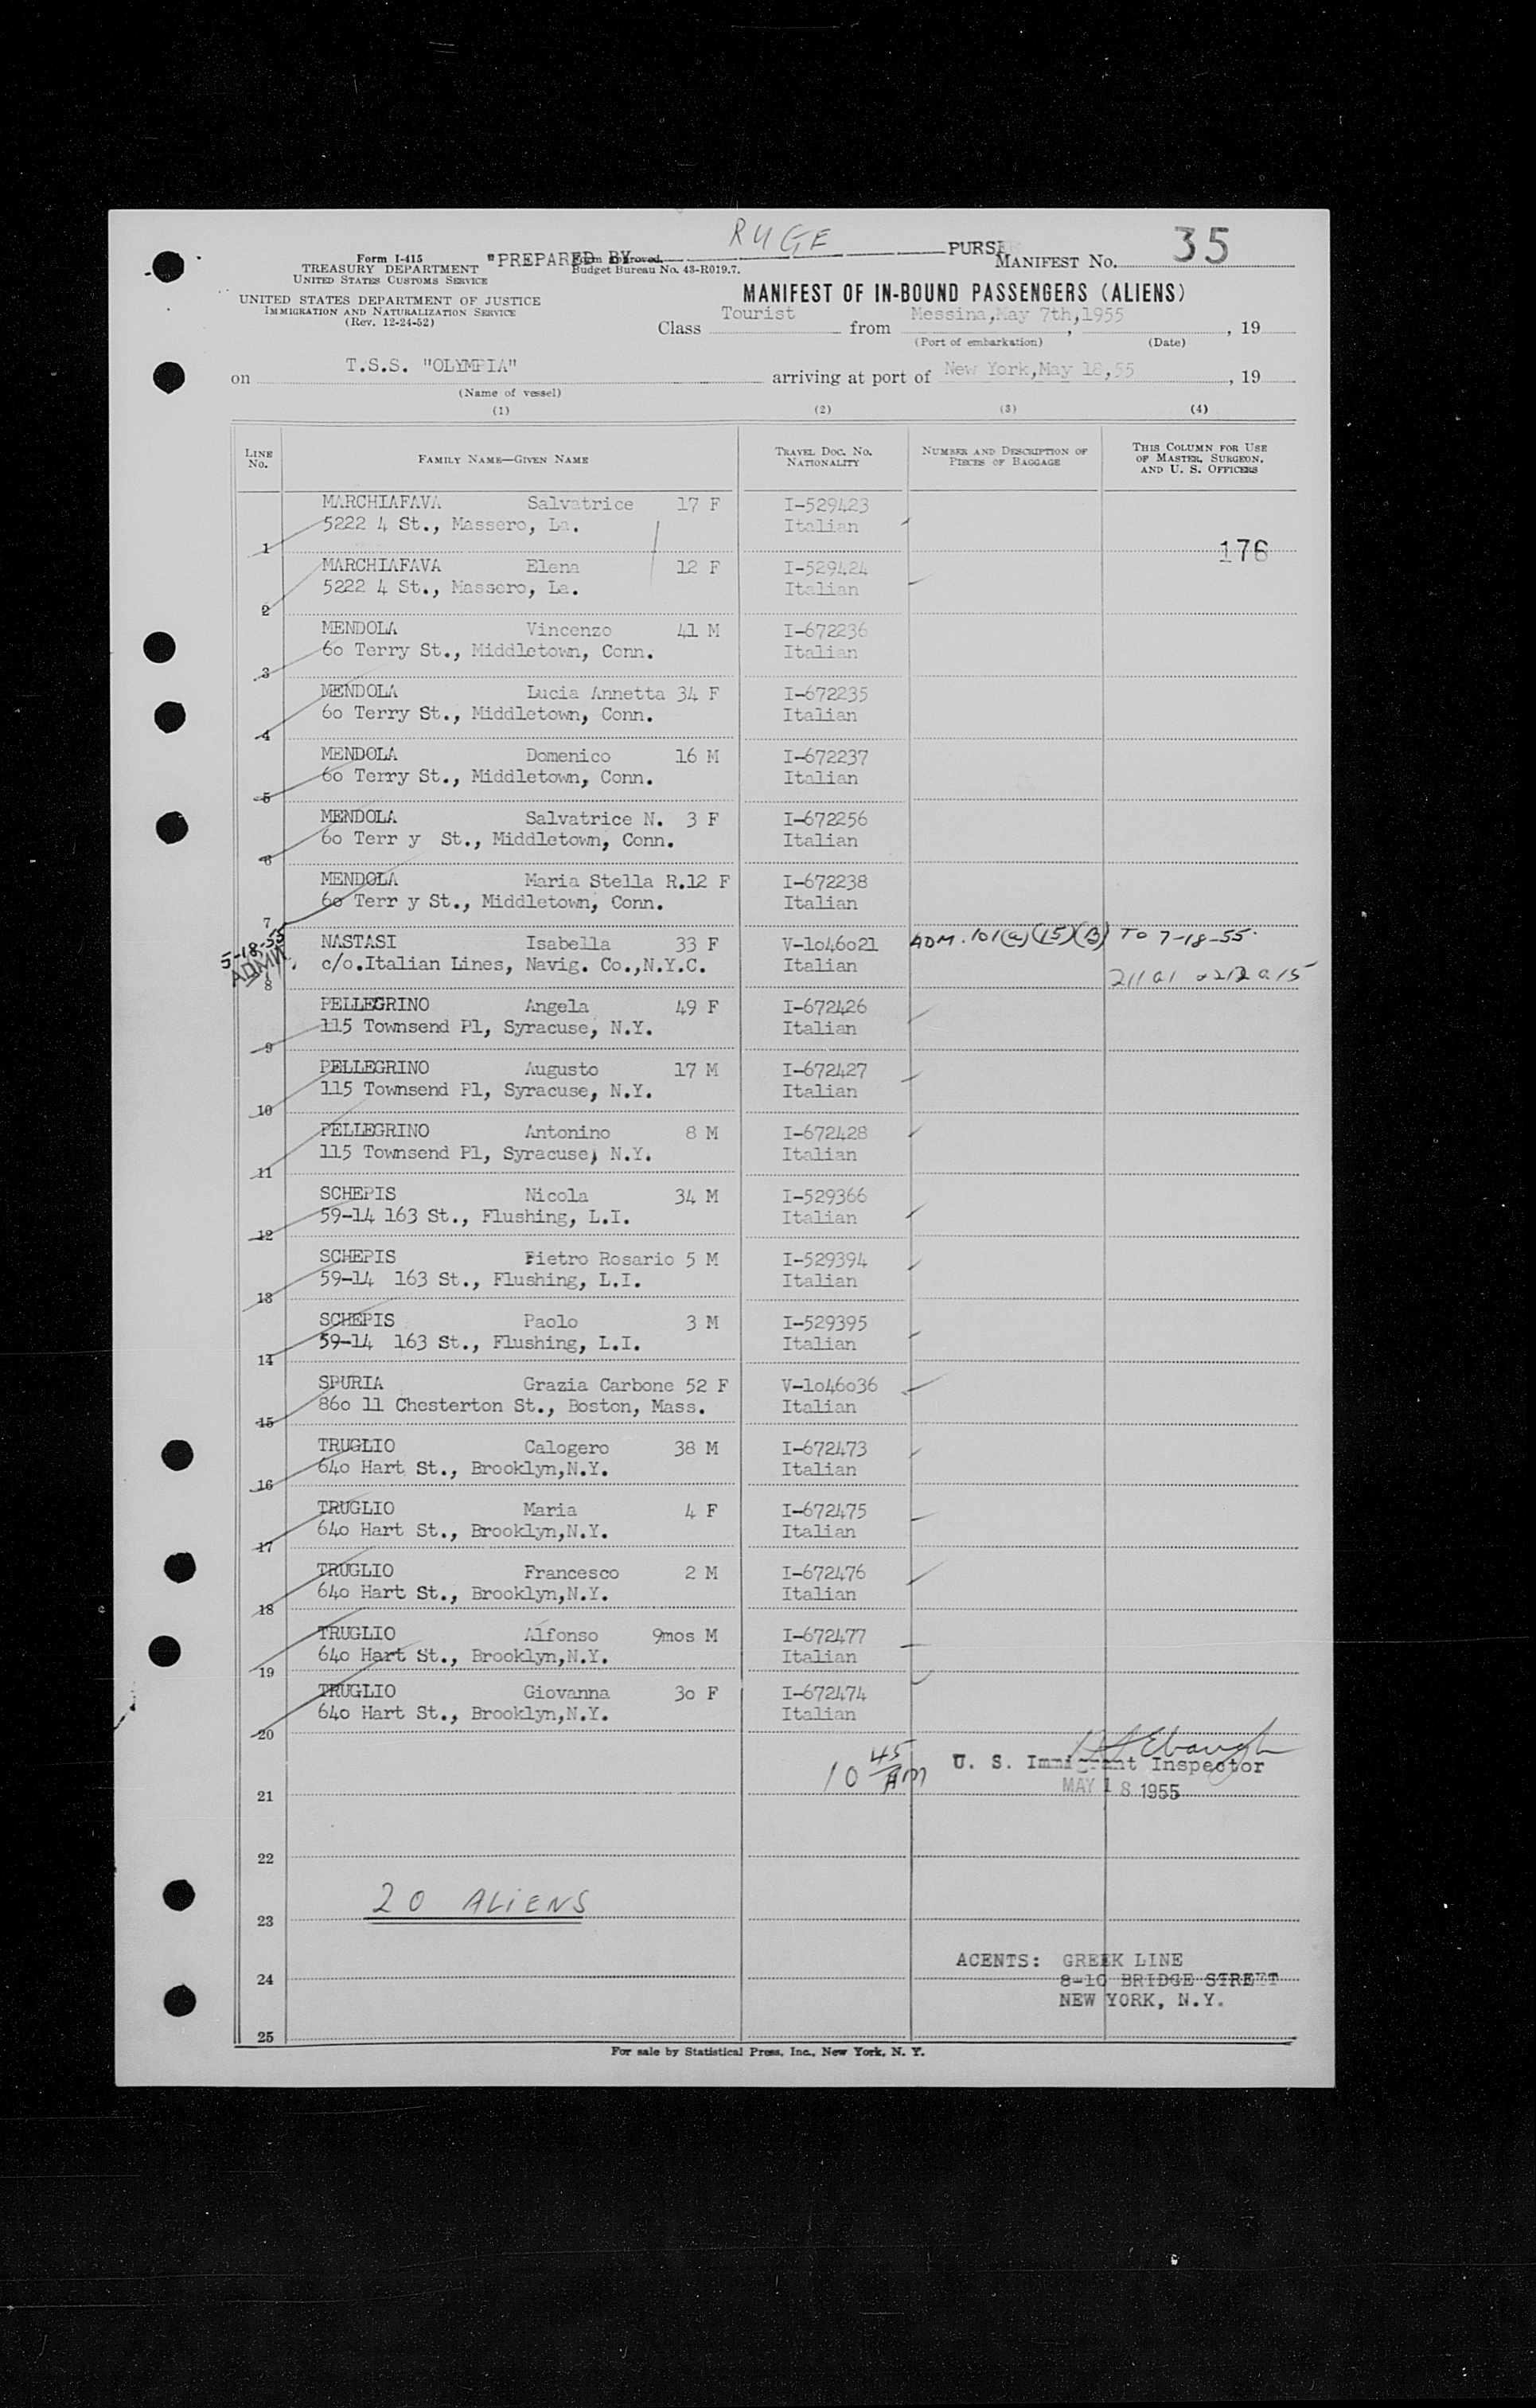 RUGE
"PREPARED BY PURSER
MANIFEST No. 35
Form I-415
TREASURY DEPARTMENT
UNITED STATES CUSTOMS SERVICE
Form approved.
Budget Bureau No. 43-R019.7.
UNITED STATES DEPARTMENT OF JUSTICE
IMMIGRATION AND NATURALIZATION SERVICE
(Rev. 12-24-52)
MANIFEST OF IN-BOUND PASSENGERS (ALIENS)
Class Tourist from Messina,May 7th,1955, 19
(Port of embarkation) (Date)
on T.S.S. "OLYMPIA" arriving at port of New York,May 18,55, 19
(Name of vessel)
(1) (2) (3) (4)
LINE No. FAMILY NAME—GIVEN NAME TRAVEL DOC. No. NATIONALITY NUMBER AND DESCRIPTION OF PIECES OF BAGGAGE THIS COLUMN FOR USE OF MASTER, SURGEON, AND U. S. OFFICERS
MARCHIAFAVA Salvatrice 17 F I-529423
5222 4 St., Massero, La. Italian
1 176
MARCHIAFAVA Elena 12 F I-529424
5222 4 St., Massero, La. Italian
2
MENDOLA Vincenzo 41 M I-672236
6o Terry St., Middletown, Conn. Italian
3
MENDOLA Lucia Annetta 34 F I-672235
6o Terry St., Middletown, Conn. Italian
4
MENDOLA Domenico 16 M I-672237
6o Terry St., Middletown, Conn. Italian
5
MENDOLA Salvatrice N. 3 F I-672256
6o Terr y St., Middletown, Conn. Italian
6
MENDOLA Maria Stella R.12 F I-672238
6o Terr y St., Middletown, Conn. Italian
7
5-18-55 NASTASI Isabella 33 F V-1o46o21 ADM. 101(a)(15)(B) TO 7-18-55.
c/o.Italian Lines, Navig. Co.,N.Y.C. Italian
8 211 a1 212 a 15
PELLEGRINO Angela 49 F I-672426
115 Townsend Pl, Syracuse, N.Y. Italian
9
PELLEGRINO Augusto 17 M I-672427
115 Townsend Pl, Syracuse, N.Y. Italian
10
PELLEGRINO Antonino 8 M I-672428
115 Townsend Pl, Syracuse, N.Y. Italian
11
SCHEPIS Nicola 34 M I-529366
59-14 163 St., Flushing, L.I. Italian
12
SCHEPIS Pietro Rosario 5 M I-529394
59-14 163 St., Flushing, L.I. Italian
13
SCHEPIS Paolo 3 M I-529395
59-14 163 St., Flushing, L.I. Italian
14
SPURIA Grazia Carbone 52 F V-1o46o36
86o 11 Chesterton St., Boston, Mass. Italian
15
TRUGLIO Calogero 38 M I-672473
64o Hart St., Brooklyn,N.Y. Italian
16
TRUGLIO Maria 4 F I-672475
64o Hart St., Brooklyn,N.Y. Italian
17
TRUGLIO Francesco 2 M I-672476
64o Hart St., Brooklyn,N.Y. Italian
18
TRUGLIO Alfonso 9mos M I-672477
64o Hart St., Brooklyn,N.Y. Italian
19
TRUGLIO Giovanna 3o F I-672474
64o Hart St., Brooklyn,N.Y. Italian
20
10 45 AM U. S. Immigrant Inspector
MAY 18 1955
21
22
20 ALIENS
23
AGENTS: GREEK LINE
24 8-10 BRIDGE STREET
NEW YORK, N.Y.
25
For sale by Statistical Press, Inc., New York, N. Y.